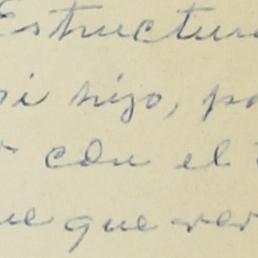 Estructura
si hizo, pa
con el
que ver